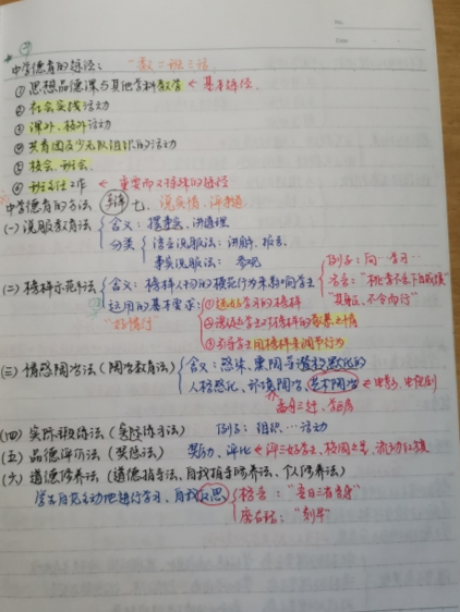 No.
Date
中学德育的途径：
① 思想品德课与其他学科教学 ← 基本途径.
② 社会实践活动
③ 课外、校外活动
④ 共青团及少先队组织的活动
⑤ 校会、班会、
⑥ 班主任工作 ← 重要而又特殊的途径
中学德育的方法
(一) 说服教育法 含义：摆事实、讲道理
分类 语言说服法：讲解、报告
事实说服法：参观
(二) 榜样示范法 含义：榜样人物的模范行为来影响学生
例子：向…学习…
方言：
"其身正，不令而行"
运用的基本要求：① 选好学习的榜样
② 激起学生对榜样的敬慕之情
③ 引导学生用榜样来调节行为
(三) 情感陶冶法（陶冶教育法） 含义：感染、熏陶 潜移默化的
人格感化、环境陶冶、艺术陶冶 ← 电影、电视剧
孟母三迁、
(四) 实际锻炼法（实践练习法） 例子：组织…活动
(五) 品德评价法（奖惩法） 奖励、评比 ← 评三好学生、 流动红旗
(六) 道德修养法（道德指导法、自我指导修养法、个人修养法）
学生自觉主动地进行学习、自我反思 格言："吾日三省吾身"
座右铭："